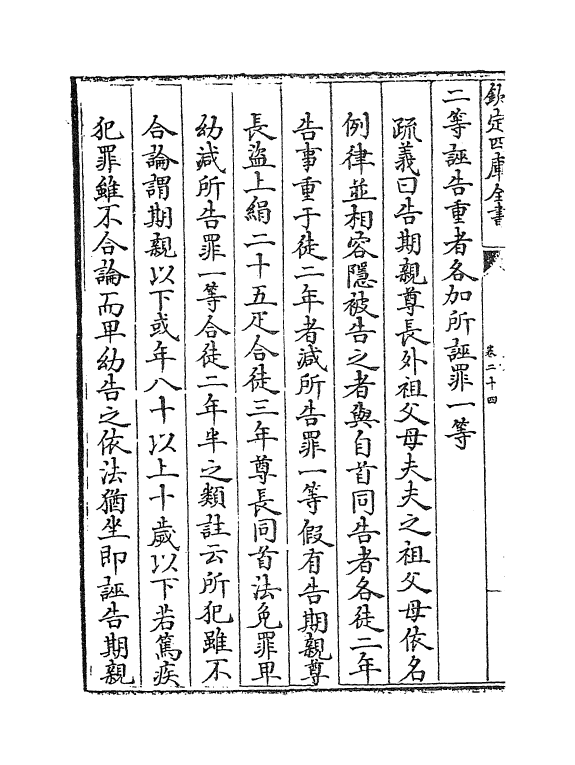 欽定四庫全書
卷二十四
二等誣告重者各加所誣罪一等
疏義曰告期親尊長外祖父母夫夫之祖父母依名
例律並相容隱被告之者與自首同告者各徒二年
告事重于徒二年者減所告罪一等假有告期親尊
長盜上絹二十五疋合徒三年尊長同首法免罪卑
幼減所告罪一等合徒二年半之類註云所犯雖不
合論謂期親以下或年八十以上十歲以下若篤疾
犯罪雖不合論而卑幼告之依法猶坐即誣告期親